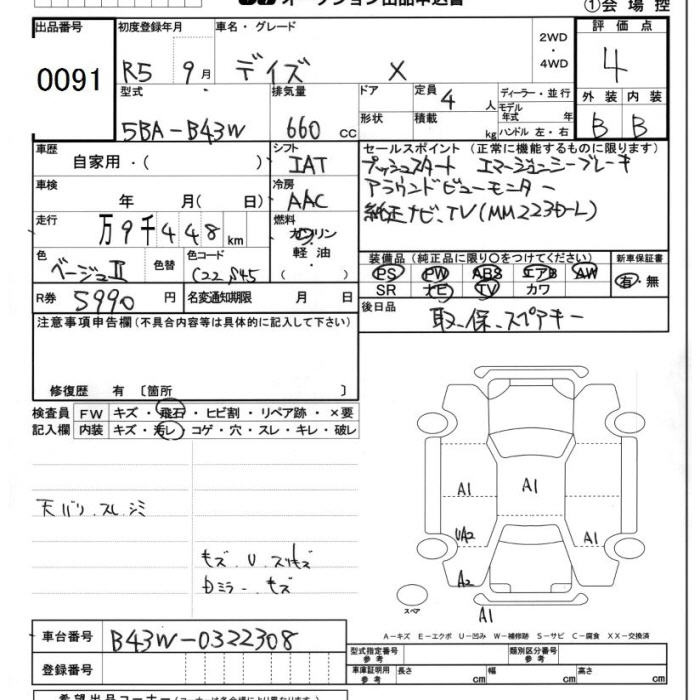 オークション出品申込書
①会場控
出品番号
0091
初度登録年月
R5 9月
車名・グレード
デイズ X
2WD
・
4WD
評価点
4
型式
5BA-B43W
排気量
660 cc
ドア
形状
定員 4 人
積載 kg
ディーラー・並行
モデル年式 年
ハンドル 左・右
外装 内装
B B
車歴
自家用・( )
シフト
IAT
セールスポイント (正常に機能するものに限ります)
プッシュスタート エマージェンシーブレーキ
アラウンドビューモニター
純正ナビ、TV(MM223D-L)
車検
年 月( 日)
冷房
AAC
走行
万9千448km
燃料
ガソリン
軽油
・( )
色
ベージュII
色替
色コード
C22 S45
装備品 (純正品に限り○をつけてください)
PS PW ABS エアB AW
SR ナビ TV カワ
新車保証書
有・無
R券 5990 円
名変通知期限 月 日
後日品
取.保.スペアキー
注意事項申告欄(不具合内容等は具体的に記入して下さい)
修復歴 有 〔箇所 〕
検査員記入欄
FW キズ・飛石・ヒビ割・リペア跡・×要
内装 キズ・汚レ・コゲ・穴・スレ・キレ・破レ
天バリ.スレ.シミ
キズ.U.スリキズ
Dミラー.キズ
A1
A1
UA2
A1
A2
A1
スペア
A-キズ E-エクボ U-凹み W-補修跡 S-サビ C-腐食 XX-交換済
車台番号 B43W-0322308
登録番号
型式指定番号 参考
類別区分番号 参考
車庫証明用 参考 長さ cm 幅 cm 高さ cm
希望出品コーナー